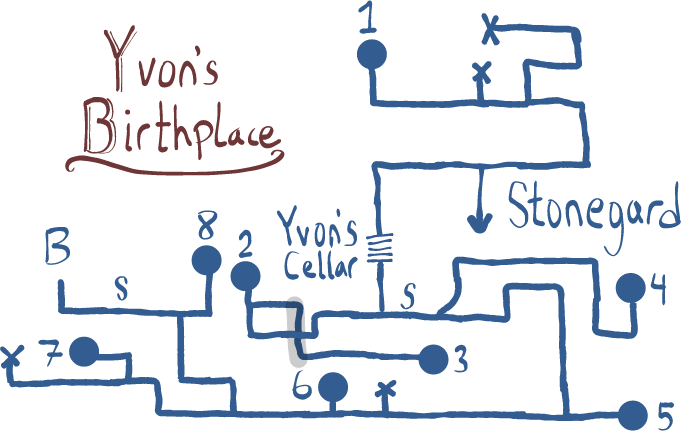 Yvon's
Birthplace
1
Stonegard
Yvon's
Cellar
B
S
8
2
S
4
7
3
6
5